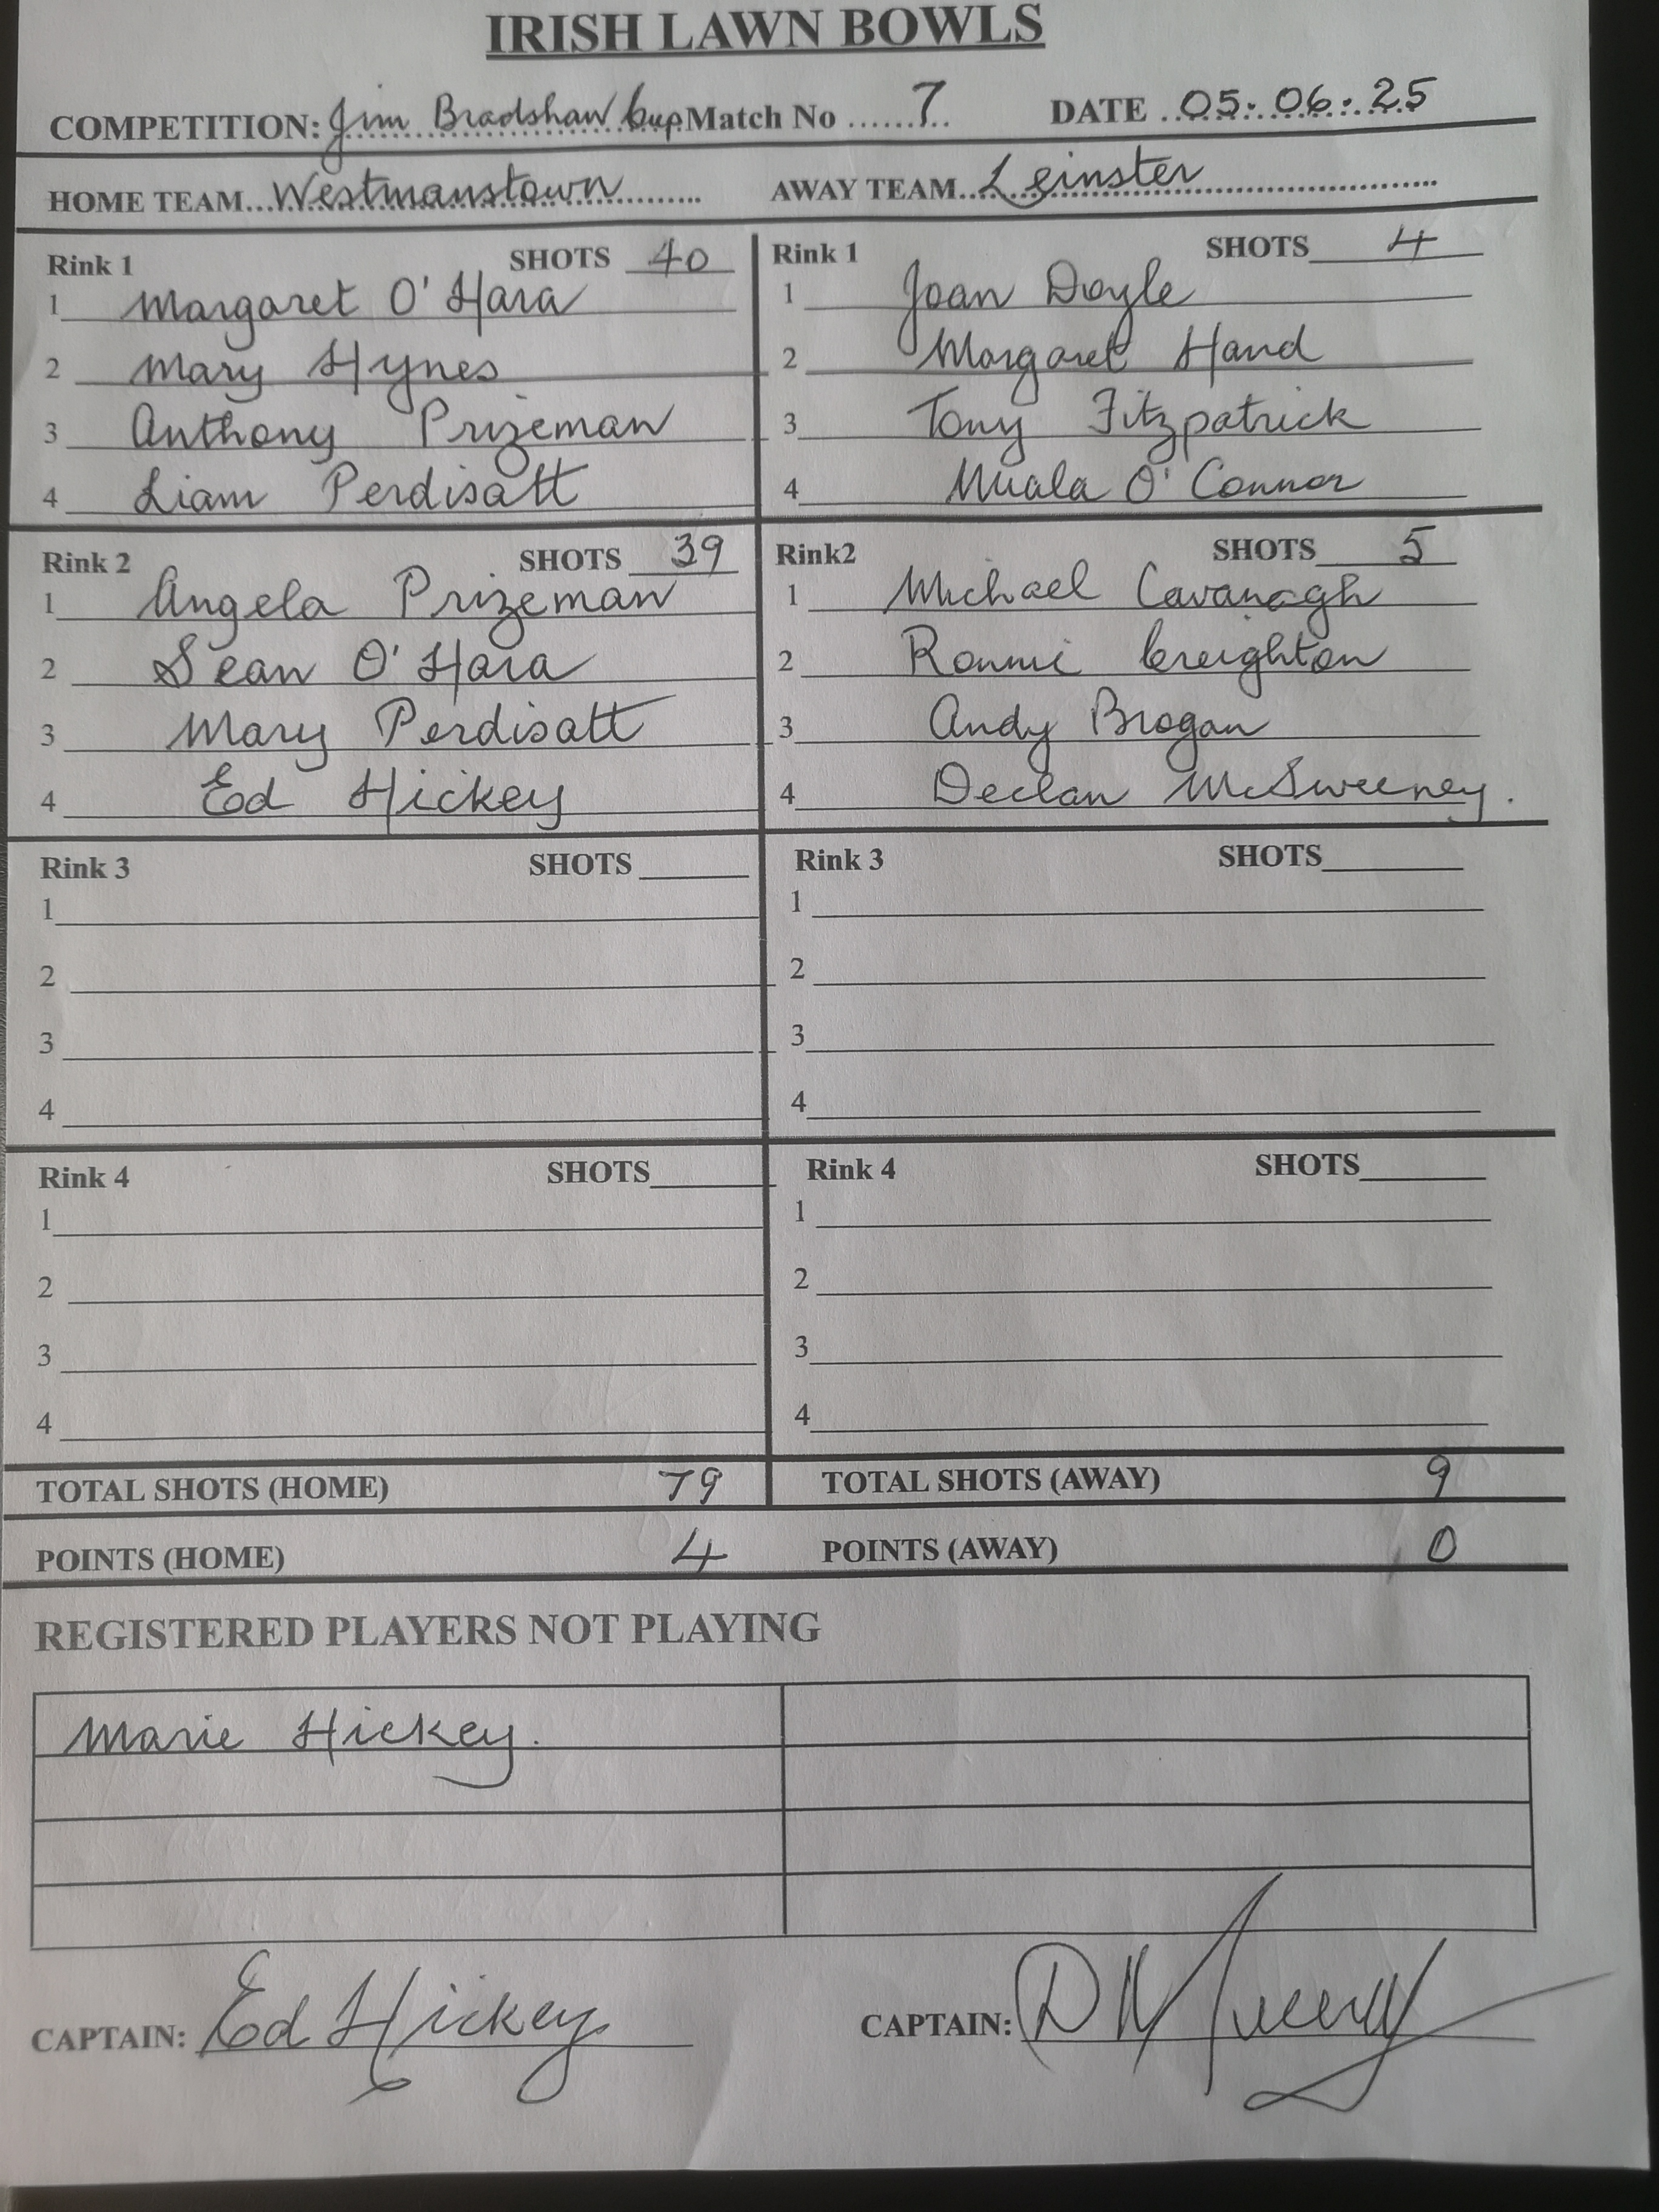 IRISH LAWN BOWLS
COMPETITION: Jim Bradshaw Cup Match No 7 DATE 05.06.25
HOME TEAM Westmanstown AWAY TEAM Leinster
Rink 1 SHOTS 40 Rink 1 SHOTS 4
1 Margaret O'Hara 1 Joan Doyle
2 Mary Hynes 2 Margaret Hand
3 Anthony Prizeman 3 Tony Fitzpatrick
4 Liam Perdisatt 4 Nuala O'Connor
Rink 2 SHOTS 39 Rink2 SHOTS 5
1 Angela Prizeman 1 Michael Cavanagh
2 Sean O'Hara 2 Ronnie Creighton
3 Mary Perdisatt 3 Andy Brogan
4 Ed Hickey 4 Declan McSweeney.
Rink 3 SHOTS Rink 3 SHOTS
1 1
2 2
3 3
4 4
Rink 4 SHOTS Rink 4 SHOTS
1 1
2 2
3 3
4 4
TOTAL SHOTS (HOME) 79 TOTAL SHOTS (AWAY) 9
POINTS (HOME) 4 POINTS (AWAY) 0
REGISTERED PLAYERS NOT PLAYING
Marie Hickey.
CAPTAIN: Ed Hickey CAPTAIN: